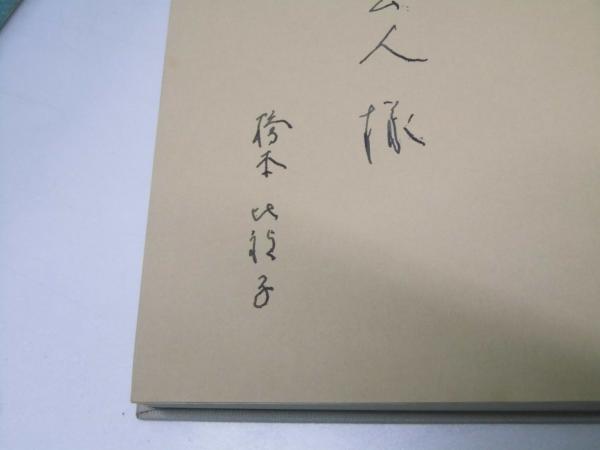 人様
橋本比禎子